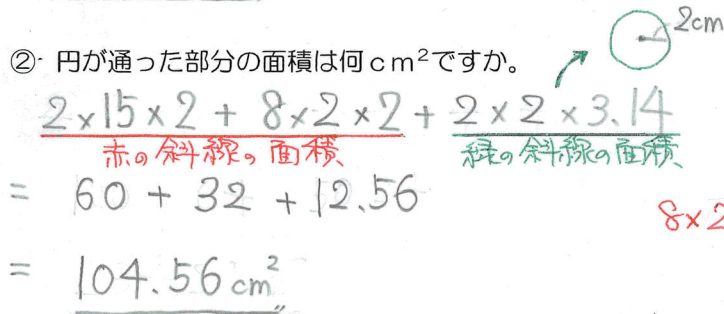 2cm
②・ 円が通った部分の面積は何cm²ですか。
2×15×2 + 8×2×2 + 2×2×3.14
赤の斜線の面積 緑の斜線の面積
= 60 + 32 + 12.56
8×2
= 104.56cm²